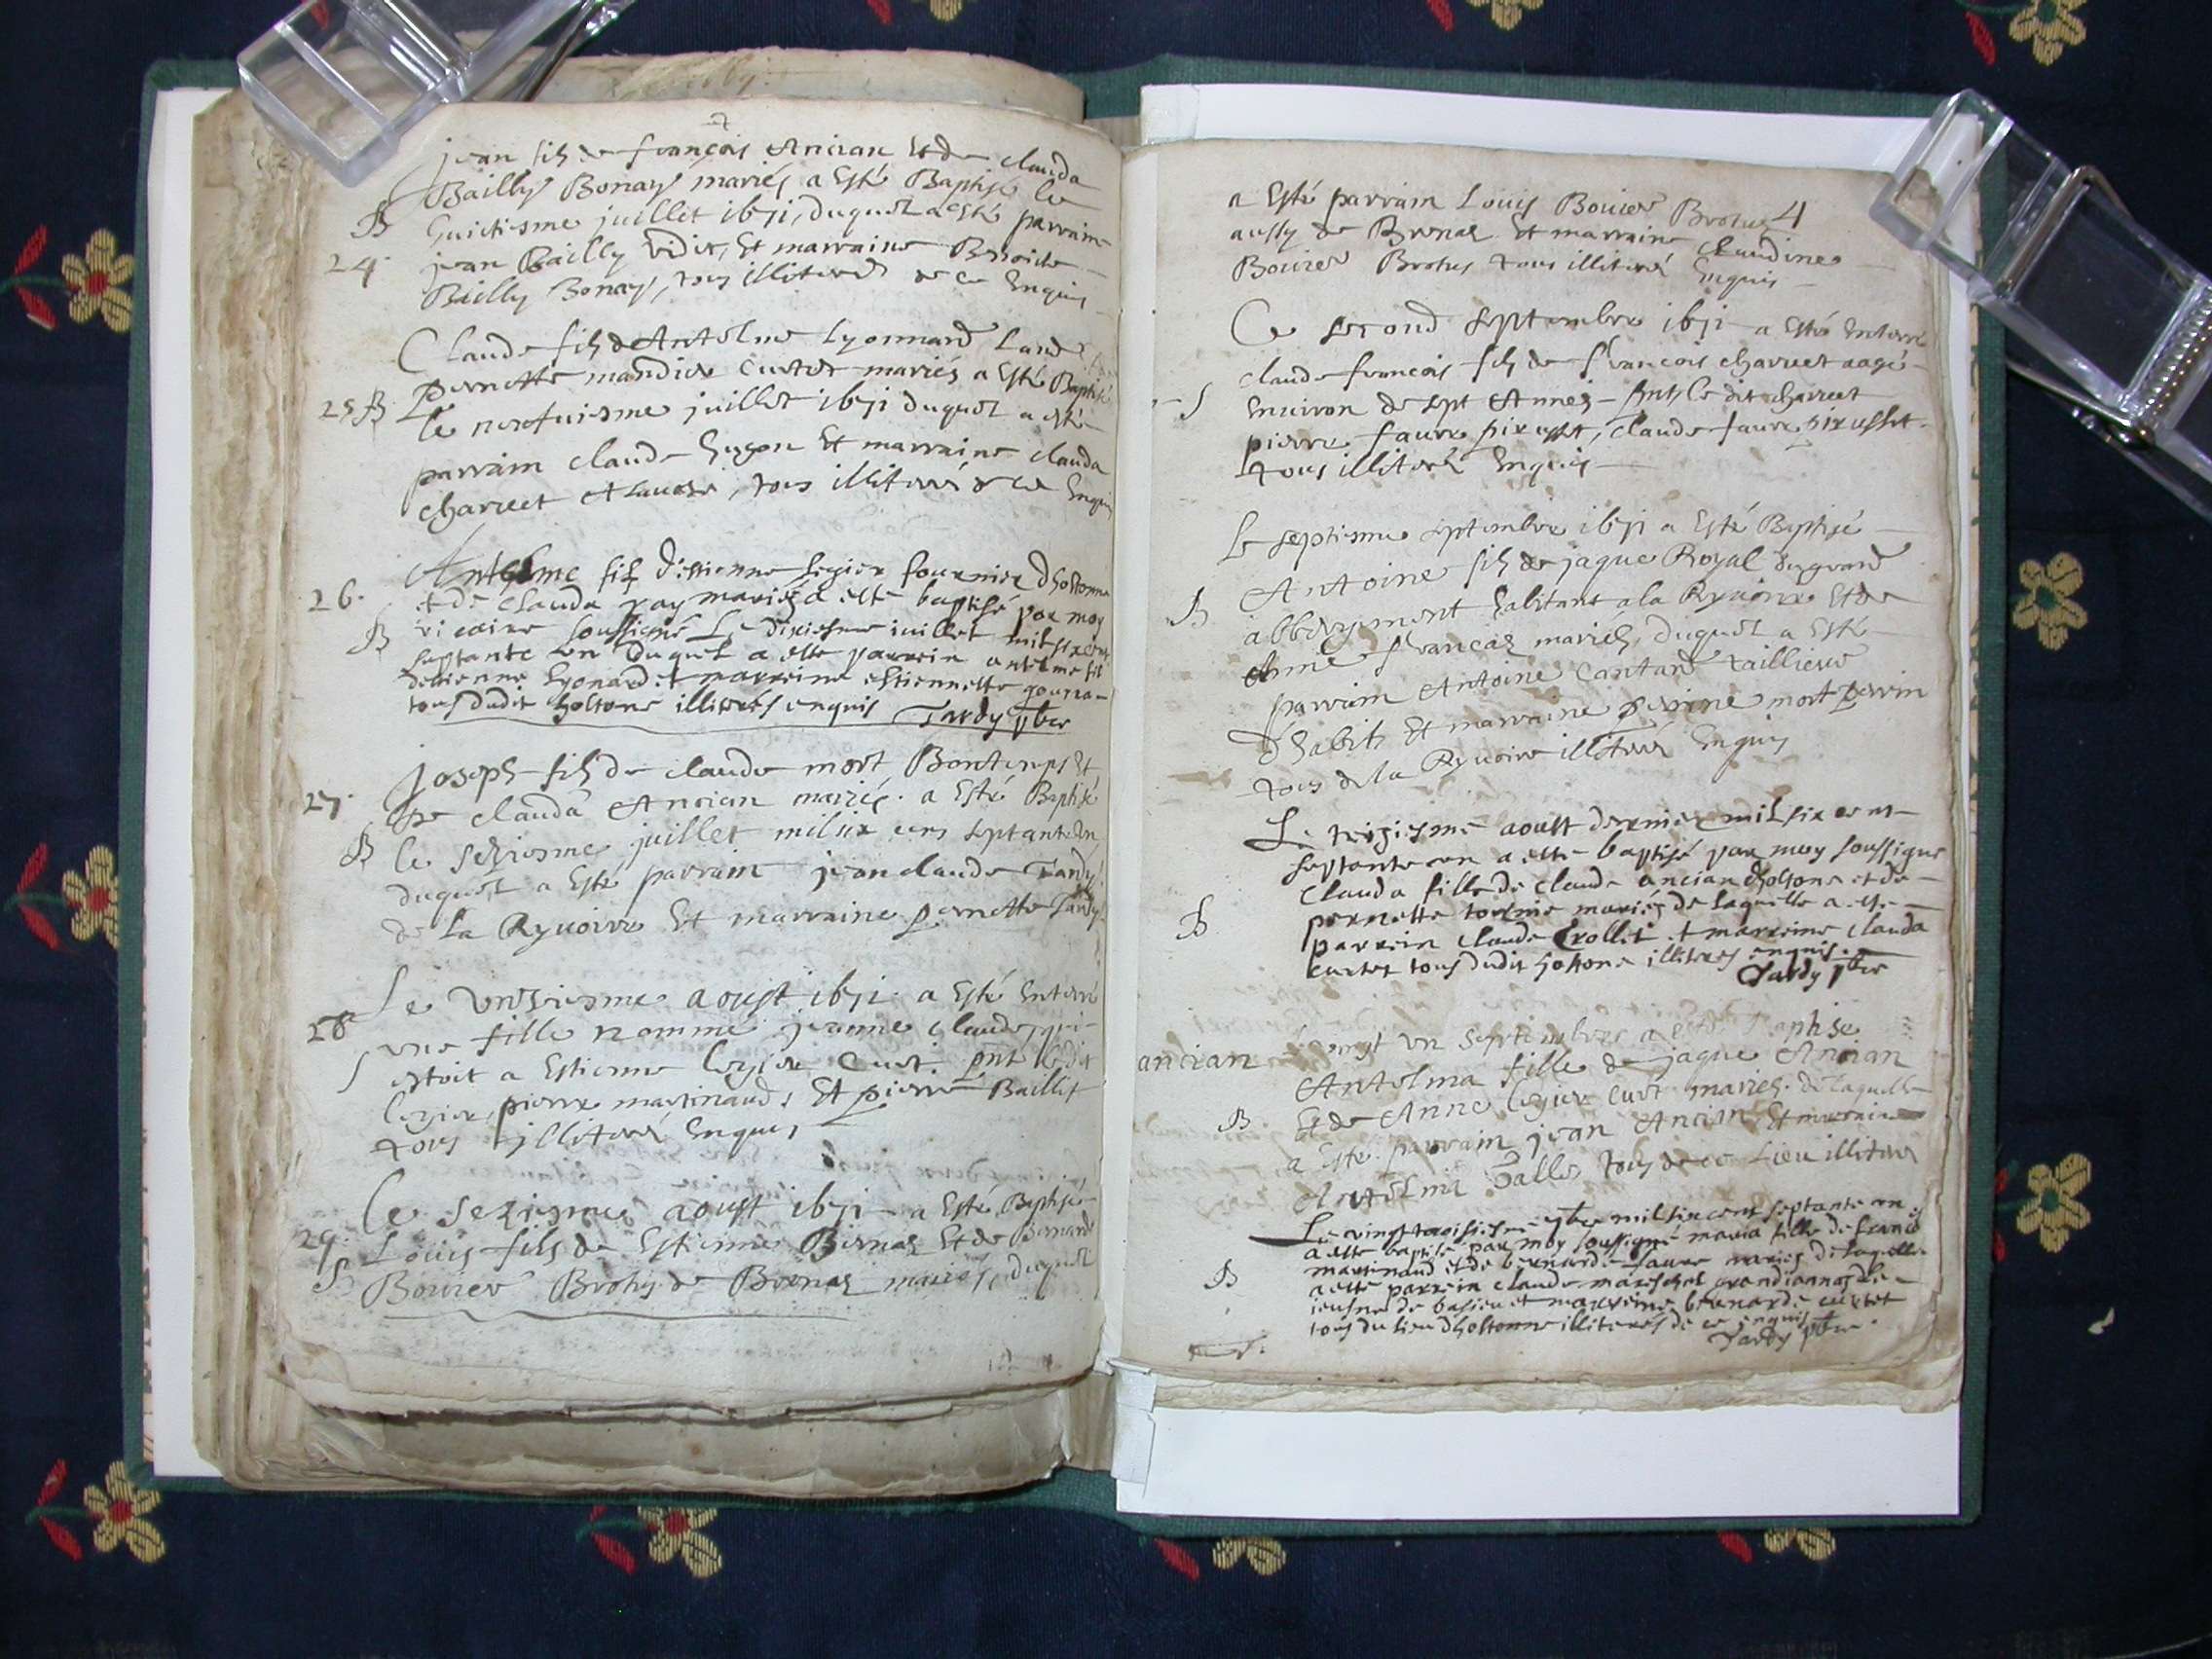 jean fils de françois Ancian et de clauda
Bailly Bonay mariés a Esté Baptisé le
B huictiesme juillet 1671, duquel a esté parrain
24 jean Bailly et marraine
Bailly Bonay, tous illiterés de ce Enquis
Claude fils de Antelme Lyonnard
pernette mandier curtet mariés a Esté Baptisé
25 B le neufuiesme juillet 1671 duquel a esté
parrain claude hugon Et marraine clauda
charuet tous illiterés de ce Enquis
Antelme fils d'estienne legier fournier dhostonne
26. et de clauda ray mariés a esté baptisé par moy
B vicaire soussigné Le dixiesme iuillet mil six cent
septante un duquel a esté parrein antelme fils
destienne Lyonard et marreine estiennette
tous dudit hostone illiterés enquis Tardy pbre
Joseph fils de claude mort Bontemps Et
27. De clauda Ancian mariés. a Esté Baptisé
B le seziesme juillet mil six cens septante Un
duquel a Esté parrain jean claude Tardy
de la Ryuoire Et marraine pernette Tardy
Le Unziesme aoust 1671 a Esté Enterré
28 une fille nommé jeanne claude, qui
S estoit a Estienne legier Curt. pnt ledit
legier, pierre martinaud, Et pierre Baillit
tous illiterés Enquis
Le seziesme aoust 1671 a Esté Baptisé
29. Louis fils de Estienne Brenas Et de Bernarde
Bouuer Brotus de Brenas mariés, duquel
4
a Esté parrain Louis Bouuer Brotus
aussy de Brenas Et marraine claudine
Bouuer Brotus tous illiterés Enquis
Le second septembre 1671 a Esté Enterré
claude françois fils de françois charuet aagé
S Enuiron de sept Années Pnts le dit charuet
pierre faure pirusset, claude faure pirusset
tous illiterés Enquis
Le septiesme septembre 1671 a Esté Baptisé
Antoine fils de jaque Royal du grand
B abbergement habitant a la Ryuoire Et de
Anne françes mariés, duquel a Esté
parrain Antoine Cantard taillieur
d'habits Et marraine perrine mort perrin
tous de la Ryuoire illiterés Enquis
Le treziesme aoust dernier mil six cent
septante un a esté baptisé par moy soussigné
Clauda fille de claude ancian dhostone et de
B pernette tournie mariés de laquelle a esté
parrein claude Crollet et marreine clauda
curtet tous dudit hostone illiteres enquis.
Tardy pbre
Le vingt un Septembre a esté Baptise
ancian Antelma fille de jaque Ancian
Et de Anne legier curt mariés. de laquelle
B a Esté parrain jean Ancian Et marraine
Antelma tous de ce Lieu illiterés
Le vingt troisiesme 7bre mil six cent septante un
a esté baptisé par moy soussigné maria fille de francois
martinaud et de bernarde faure mariés de laquelle
B a esté parrein claude mareschal grandiannas le
ieusne de basieu et marreine bernarde curtet
tous du lieu dhostonne illiterés de ce enquis
Tardy pbre.